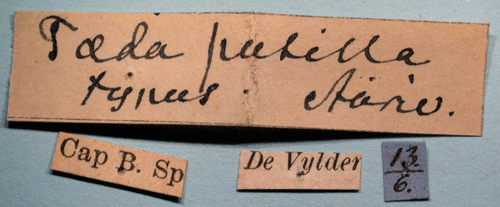 Tæda pusilla
typus. Auriv.
Cap B. Sp
De Vylder
13
6.